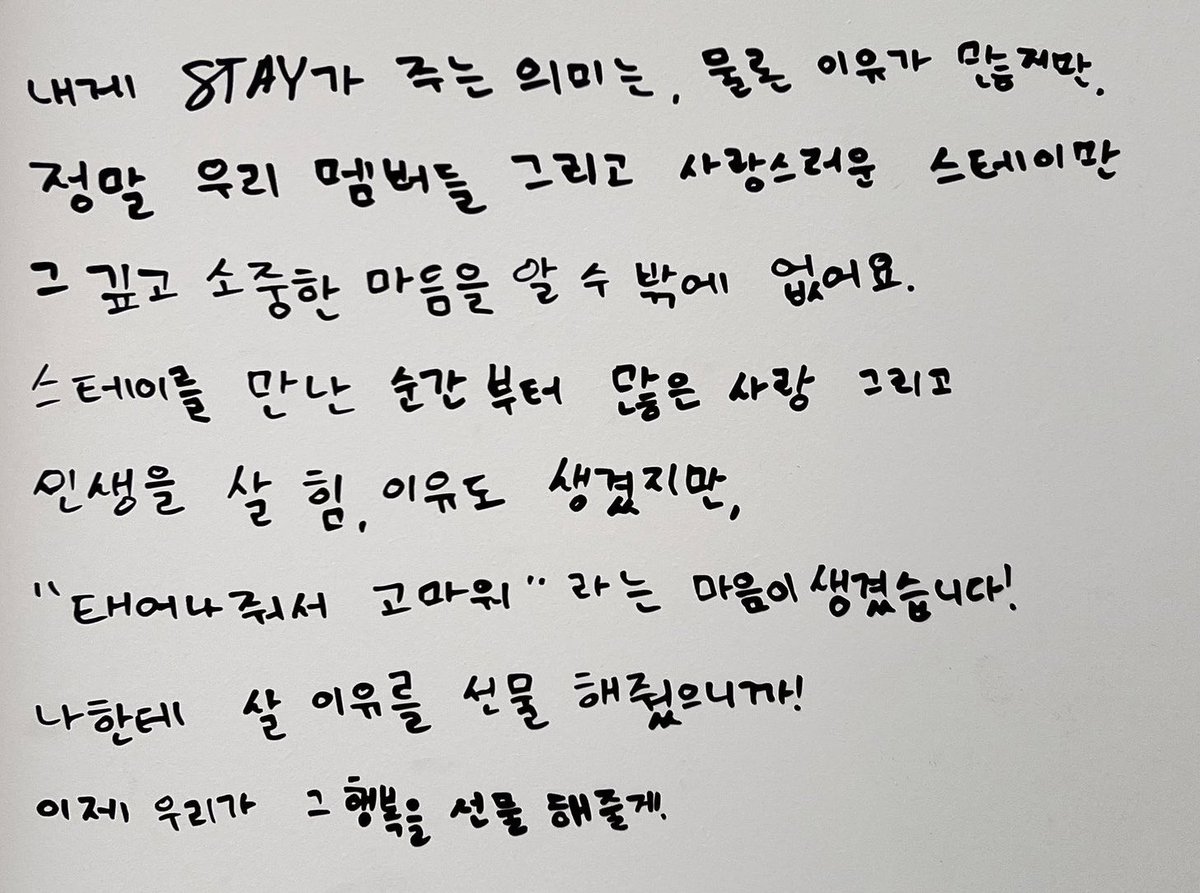 내게 STAY가 주는 의미는, 물론 이유가 많지만,
정말 우리 멤버들 그리고 사랑스러운 스테이만
그 깊고 소중한 마듬을 알 수 밖에 없어요.
스테이를 만난 순간부터 많은 사랑 그리고
인생을 살 힘, 이유도 생겼지만,
"태어나줘서 고마워" 라는 마음이 생겼습니다!
나한테 살 이유를 선물 해줬으니까!
이제 우리가 그 행복을 선물 해줄게!